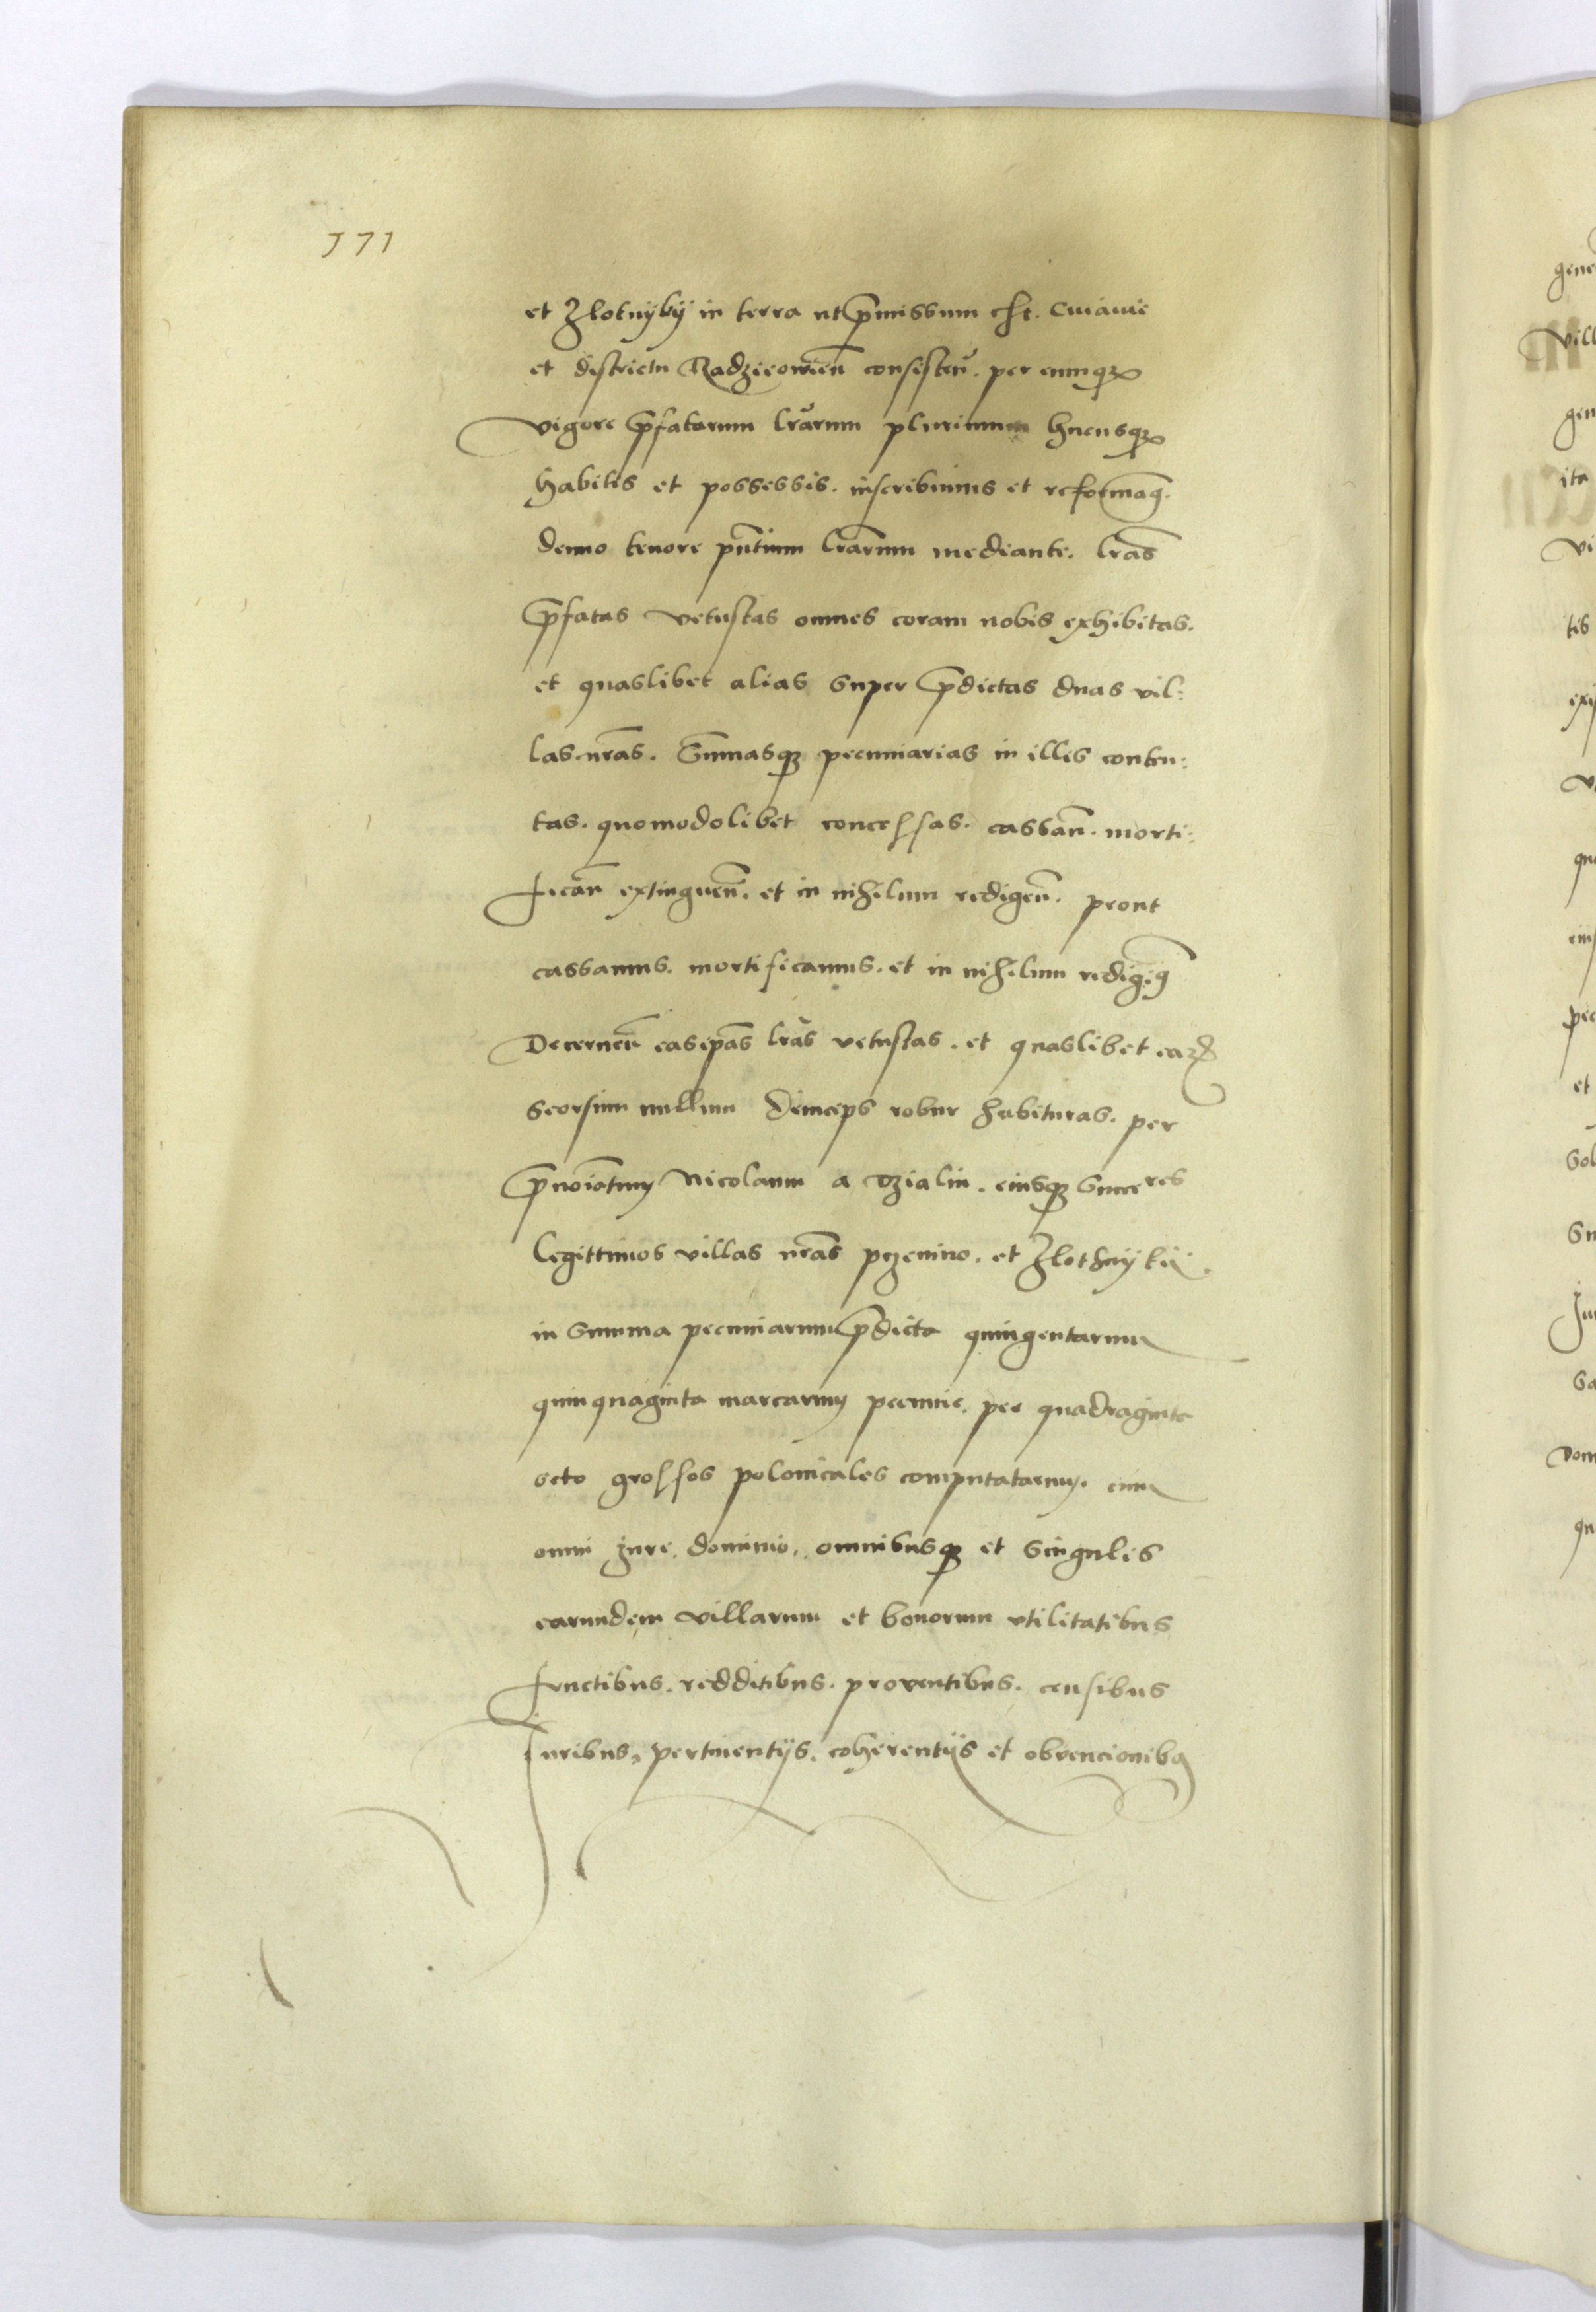 171
et Zlotnyky in terra ut p̄missum est. Cuiavie
et districtu Radzieowien̄ consisten̄. per eumq3
vigore p̄fatarum lr̄arum plurimum hucusq3
habitis et possessis. inscribimus et reformam9.
denuo tenore pn̄tium lr̄arum mediante. lr̄as
p̄fatas vetustas omnes coram nobis exhibitas.
et quaslibet alias super p̄dictas duas vil=
las nr̄as. Sum̄asq3 pecuniarias in illis conten=
tas. quomodolibet concessas. cassan̄. morti=
fican̄ extinguen̄. et in nihilum redigen̄. prout
cassamus. mortificamus. et in nihilum redigim9
Decernen̄ easip̄as lr̄as vetustas. et quaslibet eard̄
seorsim nullum deinceps robur habituras. per
p̄noīatum Nicolaum a Dzialin. eiusq3 succeres
legittimos villas nr̄as przewino. et Zlothnyki.
in summa pecuniarum p̄dicta quingentarum
quinquaginta marcarum pecunie. per quadraginta
octo grossos polonicales computatarum. cum
omni Jure, dominio, omnibusq3 et singulis
earundem villarum et bonorum utilitatibus
fructibus. redditibus. proventibus. censibus
Juribus, pertinentijs. coherentijs et obvencionib9